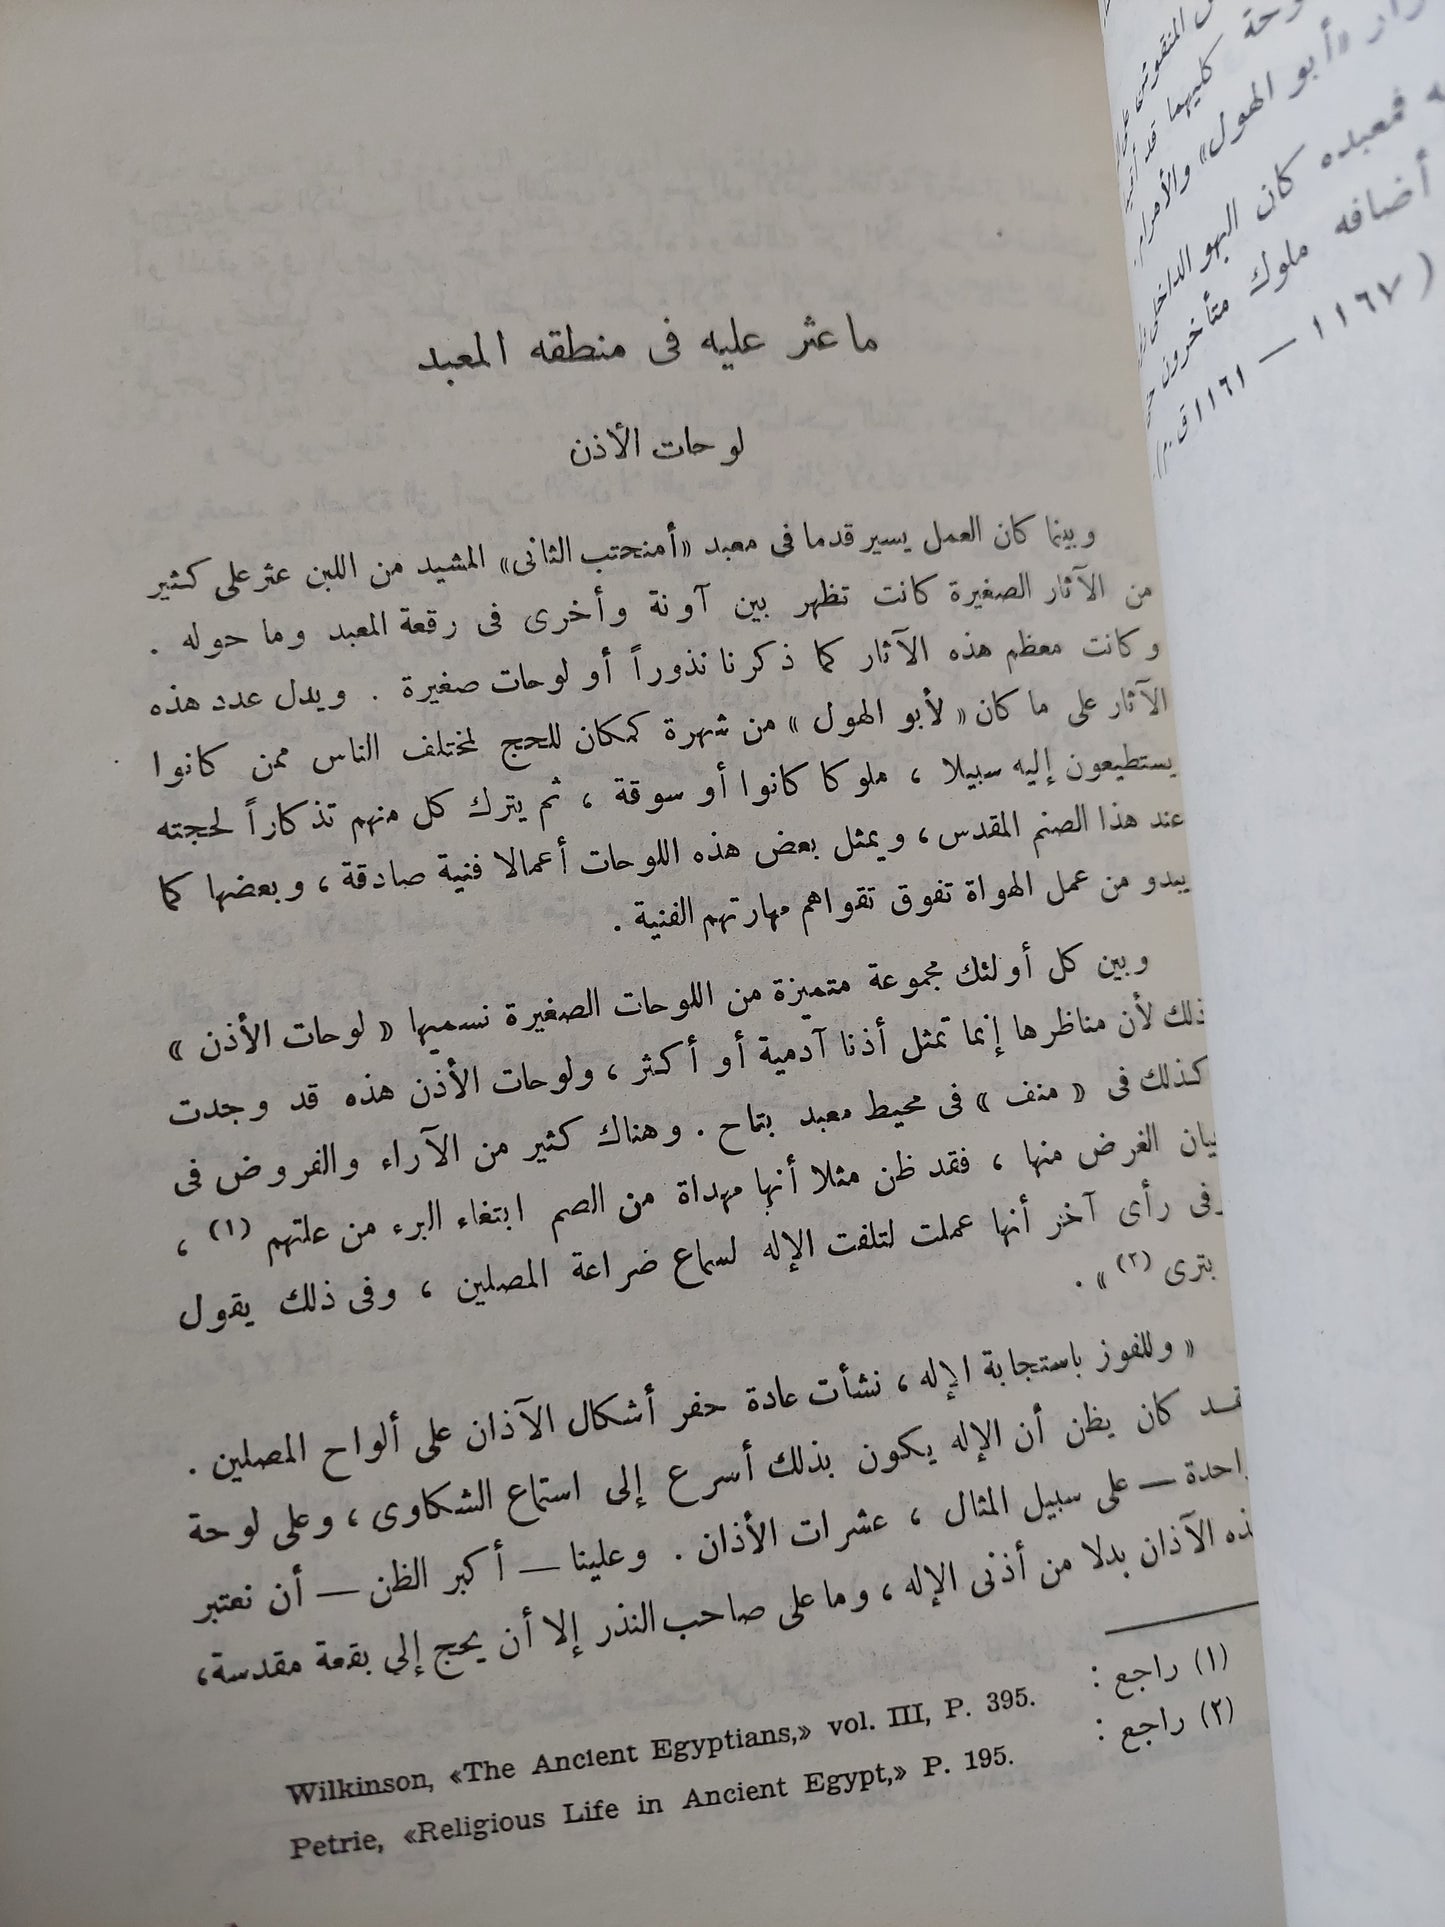 ما عثر عليه فى منطقه المعبد
لوحات الأذن
وبينما كان العمل يسير قدما فى معبد «أمنحتب الثانى» المشيد من اللبن عثر على كثير
من الآثار الصغيرة كانت تظهر بين آونة وأخرى فى رقعة المعبد وما حوله .
وكانت معظم هذه الآثار كما ذكرنا نذوراً أو لوحات صغيرة . ويدل عدد هذه
الآثار على ما كان «لأبو الهول» من شهرة كمكان للحج لمختلف الناس ممن كانوا
يستطيعون إليه سبيلا ، ملوكا كانوا أو سوقة ، ثم يترك كل منهم تذكاراً لحجته
عند هذا الصنم المقدس ، ويمثل بعض هذه اللوحات أعمالا فنية صادقة ، وبعضها كما
يبدو من عمل الهواة تفوق تقواهم مهارتهم الفنية .
وبين كل أولئك مجموعة متميزة من اللوحات الصغيرة نسميها « لوحات الأذن »
ذلك لأن مناظرها إنما تمثل أذنا آدمية أو أكثر ، ولوحات الأذن هذه قد وجدت
كذلك فى « منف » فى محيط معبد بتاح . وهناك كثير من الآراء والفروض فى
بيان الغرض منها ، فقد ظن مثلا أنها مهداة من الصم ابتغاء البرء من علتهم (١) ،
وفى رأى آخر أنها عملت لتلفت الإله لسماع ضراعة المصلين ، وفى ذلك يقول
بترى (٢) » .
« وللفوز باستجابة الإله ، نشأت عادة حفر أشكال الآذان على ألواح المصلين .
فقد كان يظن أن الإله يكون بذلك أسرع إلى استماع الشكاوى ، وعلى لوحة
واحدة — على سبيل المثال ، عشرات الأذان . وعلينا — أكبر الظن — أن نعتبر
هذه الآذان بدلا من أذنى الإله ، وما على صاحب النذر إلا أن يحج إلى بقعة مقدسة،
(١) راجع :
Wilkinson, «The Ancient Egyptians,» vol. III, P. 395.
(٢) راجع :
Petrie, «Religious Life in Ancient Egypt,» P. 195.
المنقوش
كليهما قد
«أبو الهول» والأهرام.
فمعبده كان البهو الداخلى
أضافه ملوك متأخرون
( ١١٦٧ — ١١٦١ ق.م).